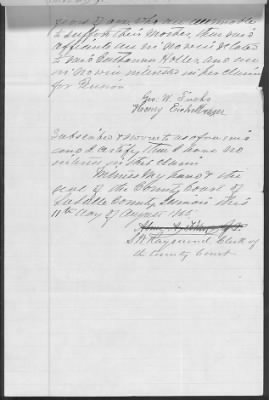 years of age, who are unable
to support their Mother, that
affiants are in no wise related
to Mrs Catharina Holler, and are
in no wise interested in her claim
for Pension
Geo. W. Fuchs
Henry
Subscribed & sworn to before me
and I certify that I have no
interest in this claim
Witness my hand & the
seal of the County Court of
LaSalle County Illinois this
11th day of August 186
S W Raymond, Clerk of
the County Court